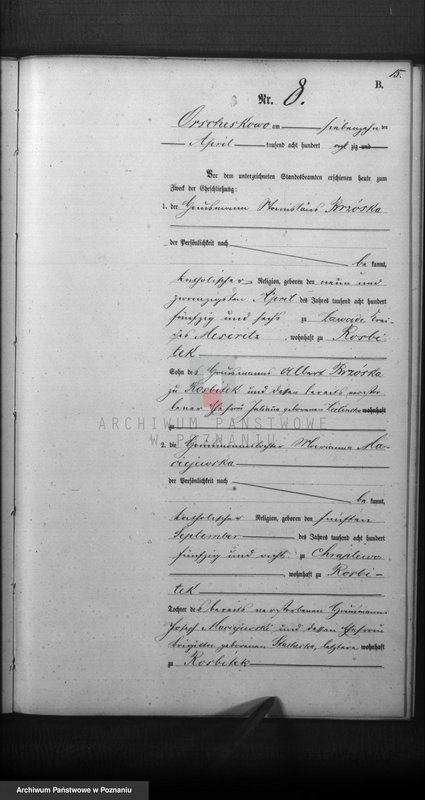 15.
B.
Nr. 8.
Orscheskowo am siebenzehn ten
April tausend acht hundert acht zig und
Vor dem unterzeichneten Standesbeamten erschienen heute zum
Zweck der Eheschließung:
1. der Hausmann Stanislaus Brzóska
der Persönlichkeit nach
be kannt,
katholischer Religion, geboren den neun und
zwanzigsten April des Jahres tausend acht hundert
fünfzig und sechs zu Lawade Krei-
ses Meseritz, wohnhaft zu Rosbi-
tek
Sohn des Hausmanns Albert Brzóska
zu Rosbitek und dessen bereits verstor-
bener Ehefrau Juliana geborenen wohnhaft
zu
ARCHIWUM PAŃSTWOWE
W POZNANIU
2. die Marianna Ma-
ciejewska
der Persönlichkeit nach
be kannt,
katholischer Religion, geboren den fünften
September des Jahres tausend acht hundert
fünfzig und sechs zu Chraplewo
, wohnhaft zu Rosbi-
tek
Tochter des bereits verstorbenen Hausmanns
Joseph Maciejewski und dessen Ehefrau
Brigitta geborenen letztere wohnhaft
zu Rosbitek
Archiwum Państwowe w Poznaniu